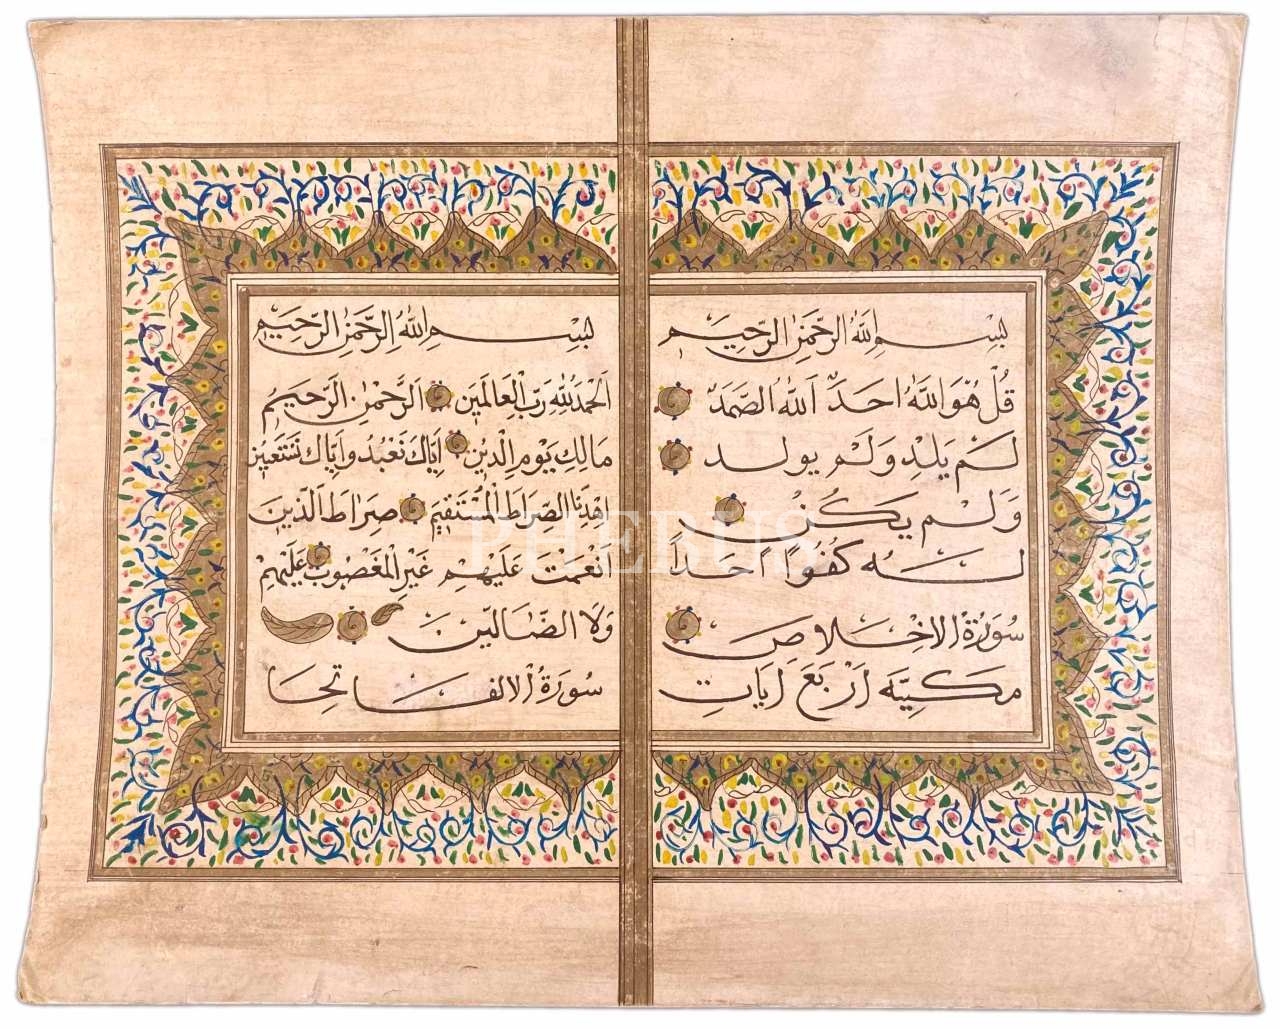 بِسْمِ اللّٰهِ الرَّحْمٰنِ الرَّحِيْمِ
قُلْ هُوَ اللّٰهُ اَحَدٌ اَللّٰهُ الصَّمَدُ
لَمْ يَلِدْ وَلَمْ يُولَد
وَلَمْ يَكُنْ
لَهُ كُفُوًا اَحَداً
سُورَةُ الاِخْلَاصِ
مَكِيَّه اَرْبَعَ اٰيَاتٍ
بِسْمِ اللّٰهِ الرَّحْمٰنِ الرَّحِيْمِ
اَلْحَمْدُ لِلّٰهِ رَبِّ الْعَالَمِيْنَ اَلرَّحْمٰنِ الرَّحِيْمِ
مَالِكِ يَوْمِ الدِّيْنِ اِيَّاكَ نَعْبُدُ وَاِيَّاكَ نَسْتَعِيْنُ
اِهْدِنَا الصِّرَاطَ الْمُسْتَقِيْمَ صِرَاطَ الَّذِيْنَ
اَنْعَمْتَ عَلَيْهِمْ غَيْرِ الْمَغْضُوبِ عَلَيْهِمْ
وَلَا الضَّالِّيْنَ
سُورَةُ الافَاتِحَا
PHEBUS